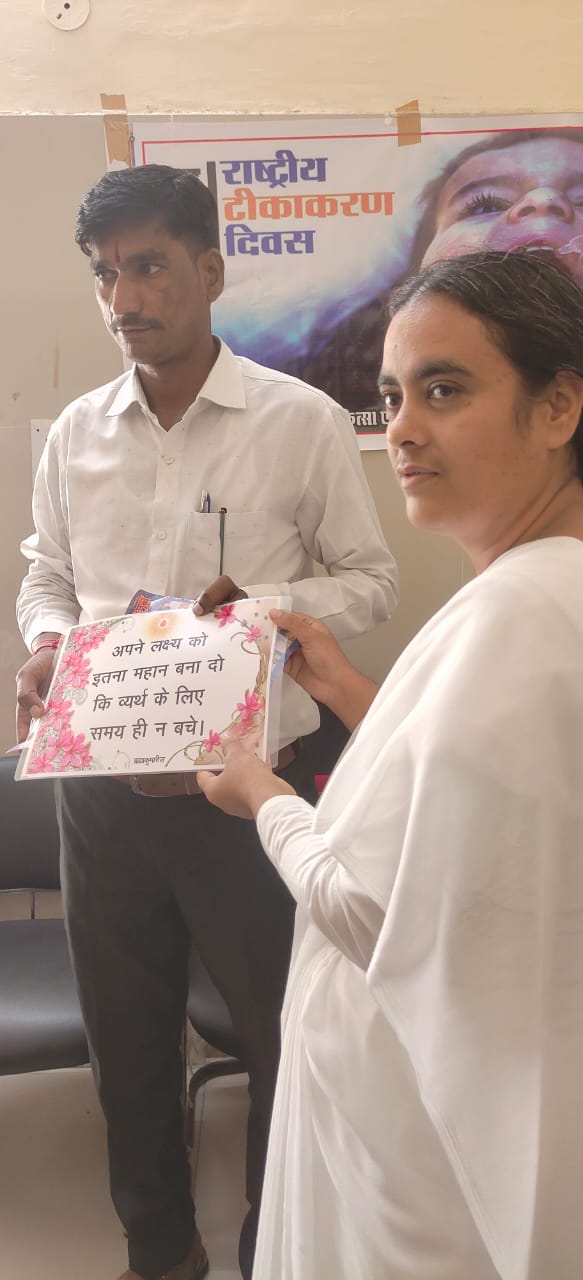 राष्ट्रीय
टीकाकरण
दिवस
अपने लक्ष्य को
इतना महान बना दो
कि व्यर्थ के लिए
समय ही न बचे।
ब्रह्माकुमारीज